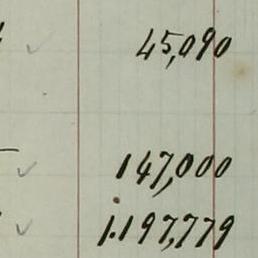 45,090
147,000
1.197,779